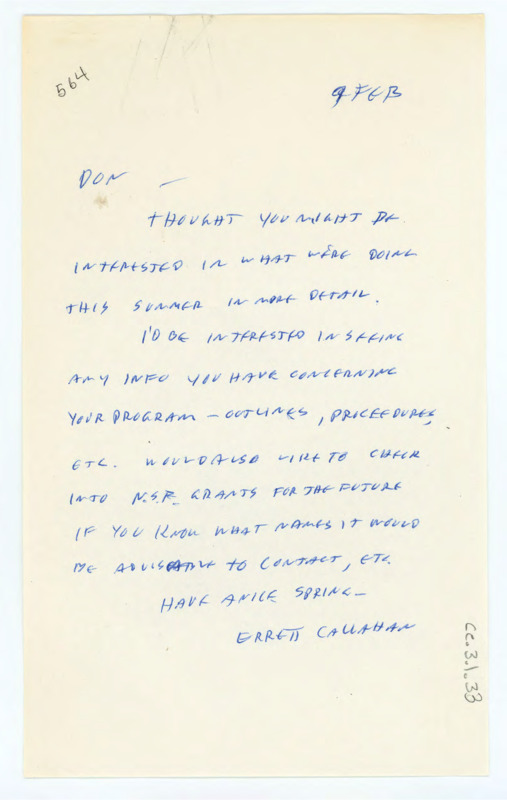 564
9 FEB
DON —
THOUGHT YOU MIGHT BE
INTERESTED IN WHAT WE'RE DOING
THIS SUMMER IN MORE DETAIL.
I'D BE INTERESTED IN SEEING
ANY INFO YOU HAVE CONCERNING
YOUR PROGRAM – OUTLINES, PROCEEDURES,
ETC. WOULD ALSO LIKE TO CHECK
INTO N.S.F. GRANTS FOR THE FUTURE
IF YOU KNOW WHAT NAMES IT WOULD
BE TO CONTACT, ETC.
HAVE A NICE SPRING –
ERRETT CALLAHAN
CC.3.1.33